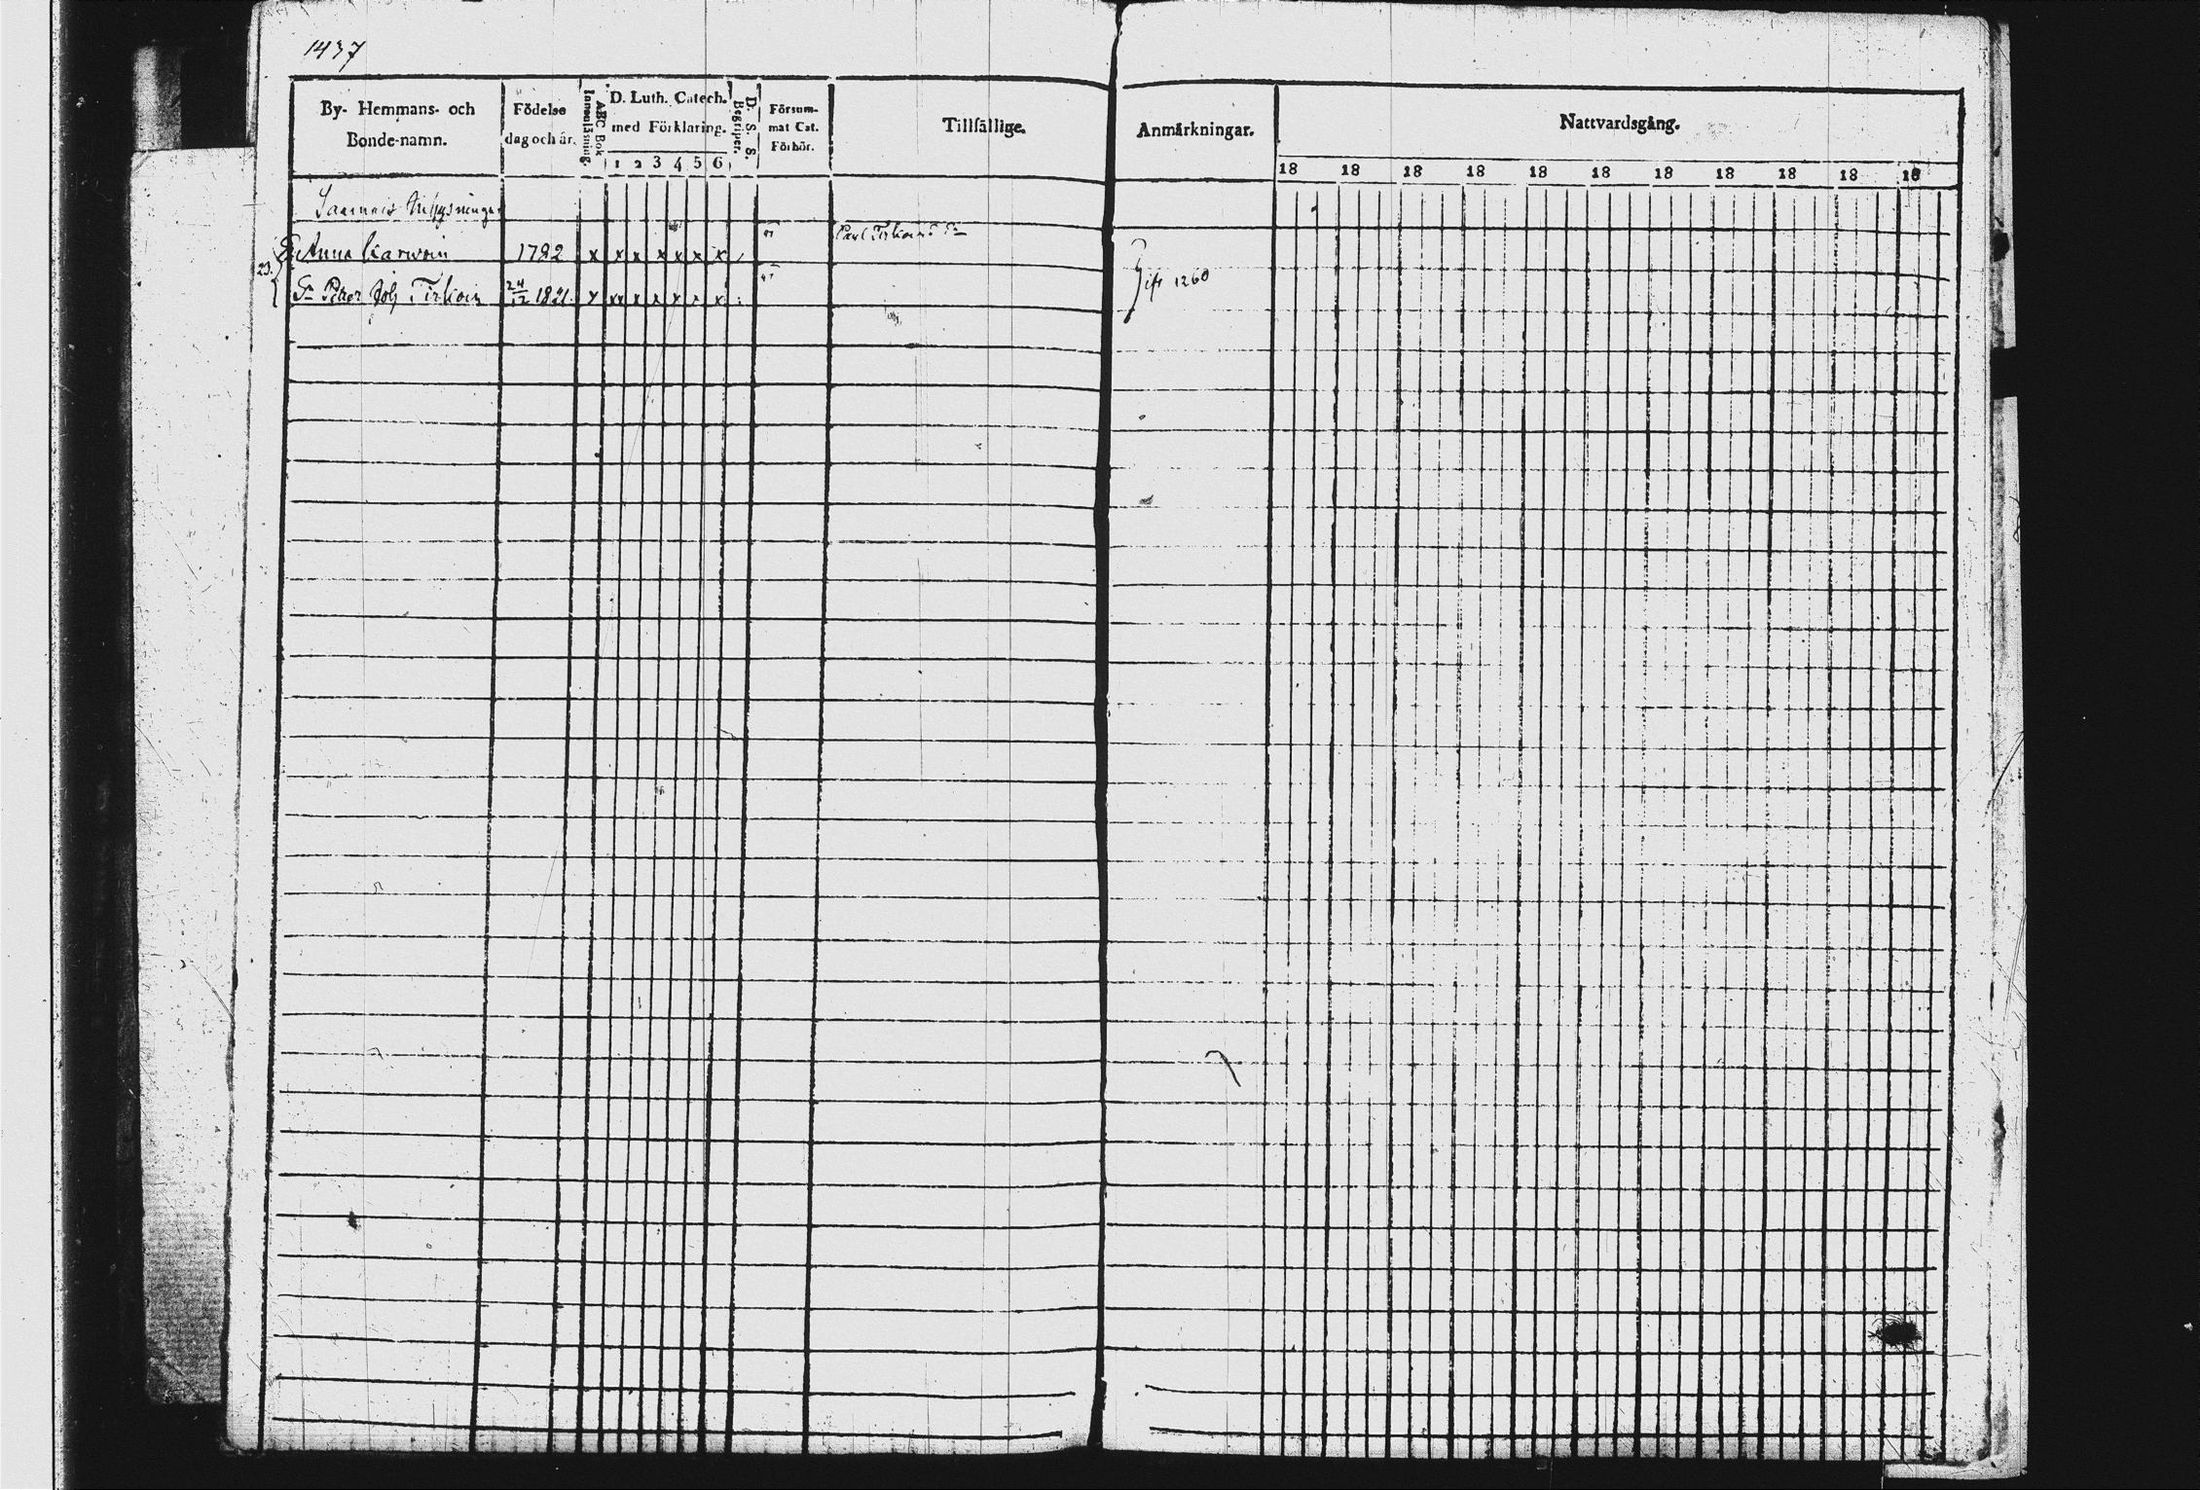 1437
By- Hemmans- och
Bonde-namn.
Födelse
dag och år.
ABC Bok
Innanläsning.
D. Luth. Catech.
med Förklaring.
1 2 3 4 5 6
D. S. S.
Begriper.
Försum-
mat Cat.
Förhör.
Tillfällige.
Anmärkningar.
Nattvardsgång.
18 18 18 18 18 18 18 18 18 18 18
Anna Karwoin 1782 x x x x x x x
23.
Petter 24/12 1821 x x x x x x x
Gift 1260